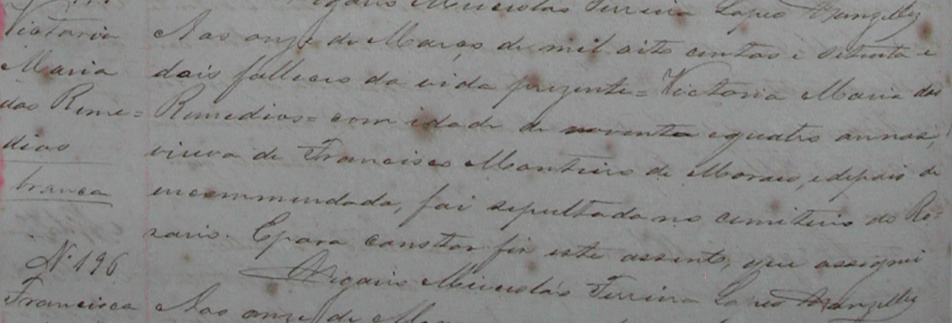 Vigario Miceslás Ferreira Lopes Wanzeller
Victoria Aos onze de Março de mil oito centos e setenta e
Maria dois falleceo da vida prezente = Victoria Maria dos
dos Reme= Remedios = com idade de noventa e quatro annos,
dios viuva de Francisco Monteiro de Moraes, e depois de
branca encommendada, foi sepultada no cimiterio do Ro-
zario. E para constar fiz este assento, que assignei
Nº 196 Vigario Miceslás Ferreira Lopes Wanzeller
Francisca Aos onze de